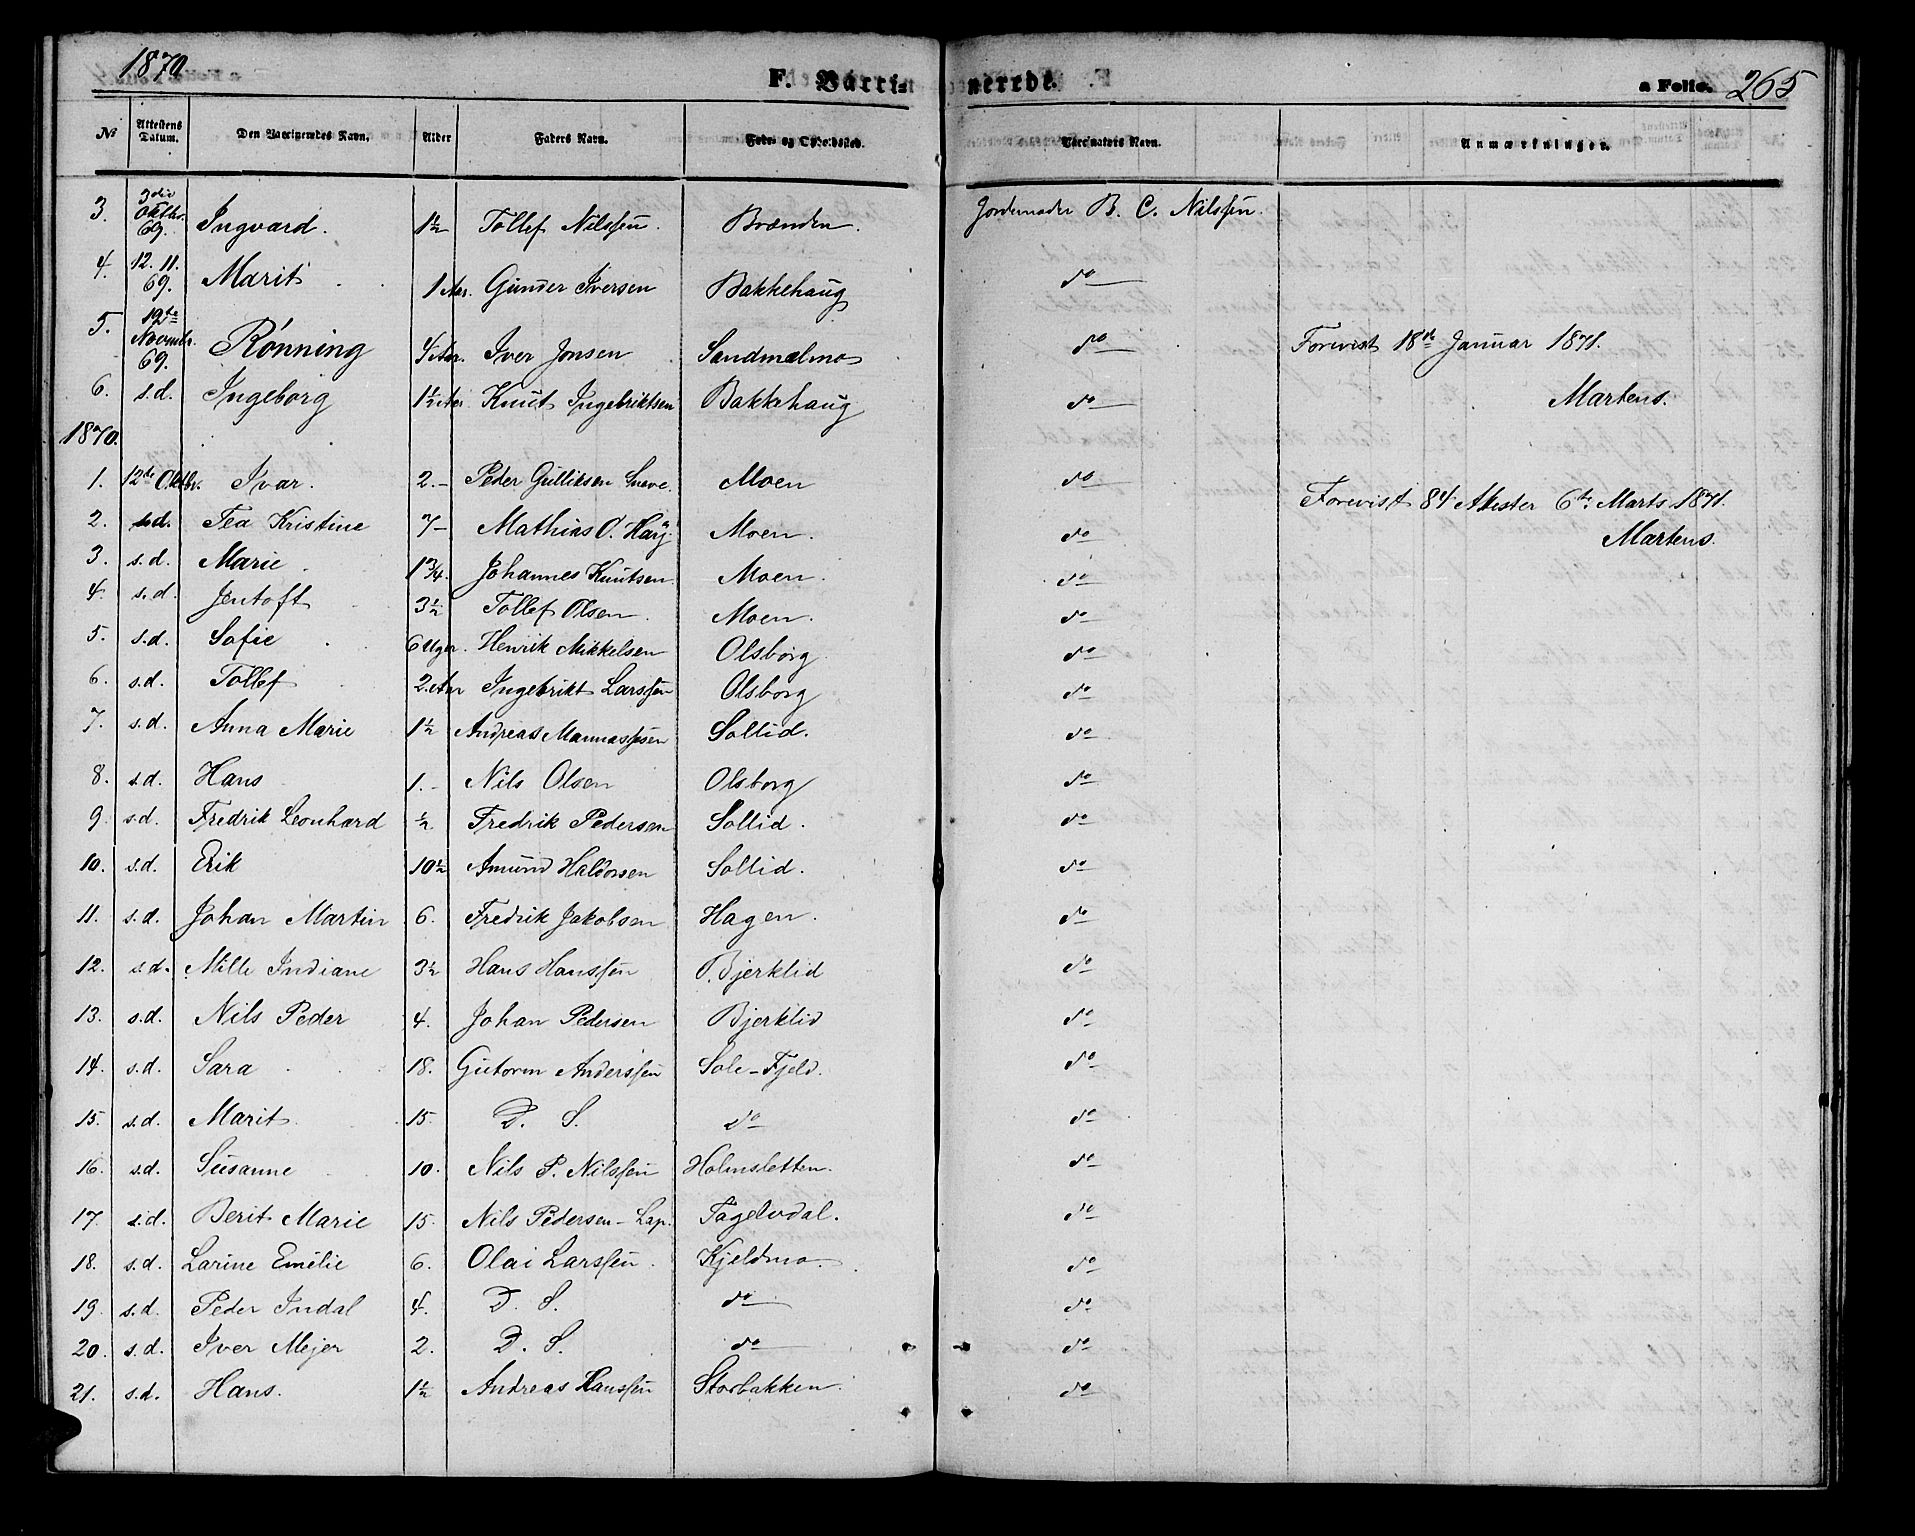 1870
F. Vacci-
nerede.
a Folio. 265
No Attestens Datum. Den Vaccineredes Navn. Alder Faders Navn. Føde- og Opholdssted. Vaccinators Navn. Anmærkninger.
3. 3die Oktbr. 69. Ingvard. 1½ Tollef Nilssen. Brænden. Jordemoder B. C. Nilssen.
4. 12. 11. 69. Marit 1 Aar. Gunder Iversen Bakkehaug do
5. 12te Novembr. 69. Rønning 4 Aar. Iver Jonsen Sandmælmo do Forevist 18de Januar 1871.
6. s.d. Ingeborg 1½ Aar Knut Ingebriktsen Bakkehaug do Martens.
1870.
1. 12te Oktbr. Ivar. 2.- Peder Gulliksen Moen do Forevist 84 Attester 6te Marts 1871.
2. s.d. Tea Kristine 7- Mathias O. Moen. do Martens.
3. s.d. Marie 1¾. Johannes Knutsen Moen. do
4. s.d. Jentoft 3½ Tollef Olsen. Moen. do
5. s.d. Sofie 6 Uger. Henrik Mikkelsen Olsborg do
6. s.d. Tollef 2. Aar Ingebrikt Larssen Olsborg do
7. s.d. Anna Marie 1½ Andreas Manassesen Sollid. do
8. s.d. Hans 1.- Nils Olsen Olsborg do
9. s.d. Fredrik Leonhard ½ Fredrik Pedersen Sollid. do
10. s.d. Erik 10½ Amund Haldorsen Sollid. do
11. s.d. Johan Martin 6. Fredrik Jakobsen Hagen. do
12. s.d. Mille Indiane 3½ Hans Hanssen Bjerklid do
13. s.d. Nils Peder 4. Johan Pedersen Bjerklid do
14. s.d. Sara 18. Gutorm Anderssen Sole-Fjeld. do
15. s.d. Marit 15. D. S. do do
16. s.d. Susanne 10. Nils P. Nilssen Holmsletten. do
17. s.d. Berit Marie 15. Nils Pedersen-Lap. Tagelvdal. do
18. s.d. Larine Emelie 6. Olai Larssen. Kjeldmo. do
19. s.d. Peder Indal 4. D. S. do do
20. s.d. Iver Mejer 2. D. S. do do
21. s.d. Hans. 1½ Andreas Hanssen Storbakken. do